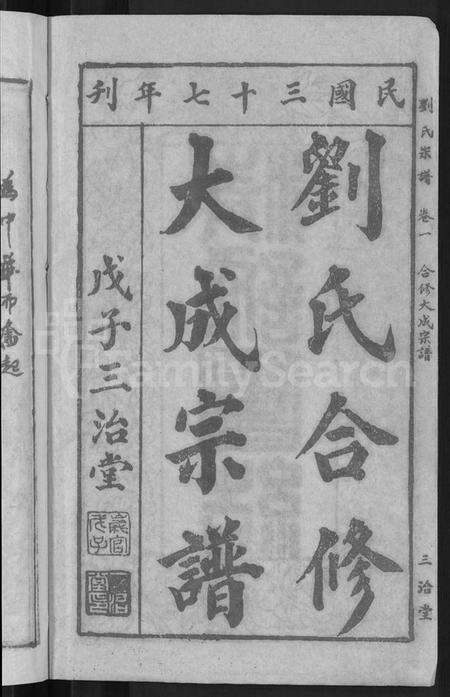 民國三十七年刊
劉氏合修
大成宗譜
戊子三治堂
劉氏宗譜 卷一 合修大成宗譜 三治堂
為中華而奮起
FamilySearch